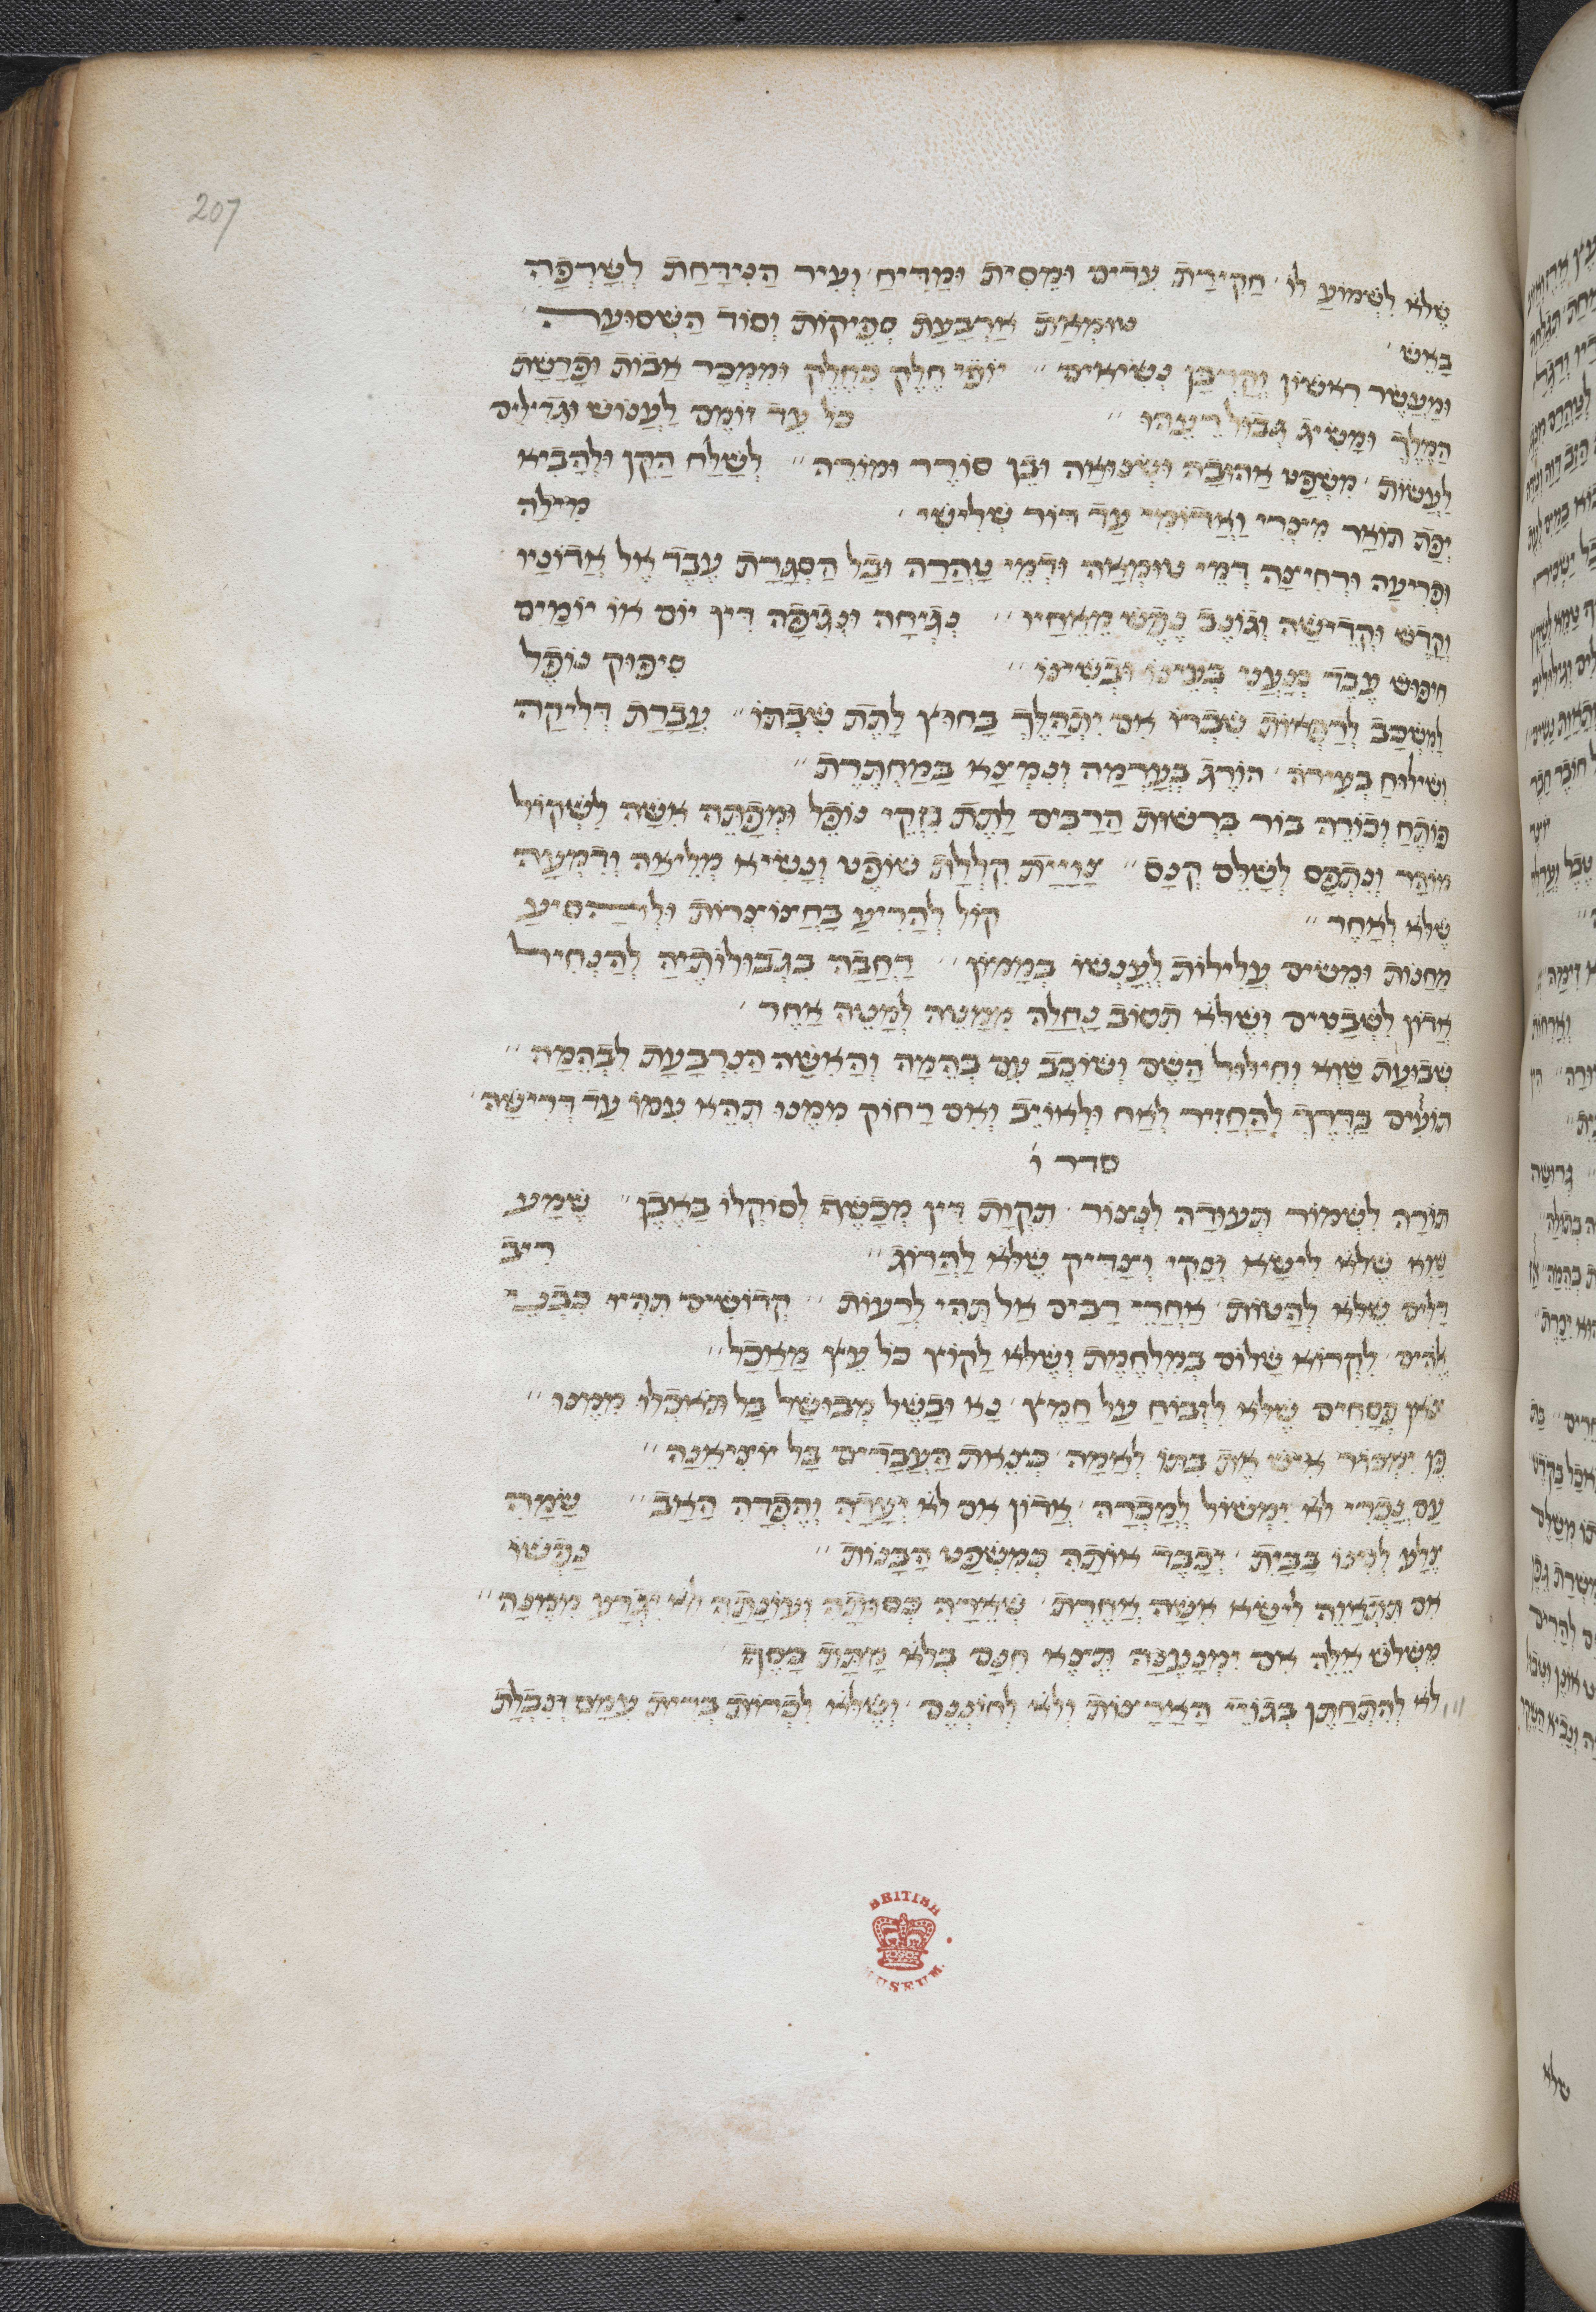 207
שֶׁלֹּא לִשְׁמוֹעַ לוֹ׳ חֲקִירַת עֵדִים וּמֵסִית וּמַדִּיחַ וְעִיר הַנִּידַּחַת לְשָׂרְפָהּ
בָאֵשׁ׳ טוּמְאַת אַרְבַּעַת סְפֵיקוֹת וְסוֹד הַשְׁסוּעָה
וּמַעֲשֵׂר רִאשׁוֹן וְקָרְבַּן נְשִׂיאִים׳׳ יוֹפִי חֵלֶק כְּחֵלֶק וּמִמְכַּר אָבוֹת וּפָרָשַׁת
הַמֶּלֶךְ וּמַשִּׂיג גְּבוּל רֵעֵהוּ׳׳ כל עֵד זוֹמֵם לַעֲנוֹשׁ וּגְדִילִים
לַעֲשׂוֹת׳ מִשְׁפַּט אֲהוּבָה וּשְׂנוּאָה וּבֵן סוֹרֵר וּמוֹרֶה׳׳ לְשַׁלַּח הַקֵּן וּלְהָבִיא
יְפַת תּוֹאַר מִצְרִי וַאֲדוֹמִי עַד דּוֹר שְׁלִישִׁי׳ מִילָה
וּפְרִיעָה וּרְחִיצָה דְּמֵי טוּמְאָה וּדְמֵי טָהֳרָה וּבַל הַסְגָּרַת עֶבֶד אֶל אֲדוֹנָיו
וְקָדֵשׁ וּקְדֵישָׁה וְגוֹנֵב נֶפֶשׁ מֵאֶחָיו׳׳ נְגִיחָה וּנְגִיפָה דִּין יוֹם אוֹ יוֹמַיִם
חִיפּוּשׁ עֶבֶד כְּנַעֲנִי בְּעֵינוֹ וּבְשִׁינּוֹ׳׳ סִיפּוּק נוֹפֵל
לְמִשְׁכָּב לְרַפְּאוֹת שִׁבְרוֹ אִם יִתְהַלֵּךְ בַּחוּץ לָתֵת שִׁבְתּוֹ׳׳ עֲבֵרַת דְּלִיקָה
וְשִׁילּוּחַ בְּעִירֹה׳ הוֹרֵג בְּעָרְמָה וְנִמְצָא בַּמַּחְתֶּרֶת׳׳
פּוֹתֵחַ וְכוֹרֶה בוֹר בִּרְשׁוּת הָרַבִּים לָתֵת נִזְקֵי נוֹפֵל וּמְפַתֵּה אִשָּׁה לִשְׁקוֹל
מוֹהַר וְנִתְפַּס לְשַׁלֵּם קְנָס׳׳ קִלְלַת שׁוֹפֵט וְנָשִׂיא מְלֵיאָה וְדִמְעָה
שֶׁלֹּא לְאַחֵר׳׳ קוֹל לְהָרִיעַ בַּחֲצוֹצְרוֹת וּלְהַסִּיעַ
מַחֲנוֹת וּמֵשִׂים עֲלִילוֹת לְעָנְשׁוֹ בְּמָמוֹן׳׳ רְחָבָה בִּגְבוּלוֹתֶיהָ לְהַנְחִיל
אֲרוֹן לִשְׁבָטִים וְשֶׁלֹּא תִּסּוֹב נַחֲלָה מִמַּטֶּה לְמַטֶּה אַחֵר׳
שְׁבוּעַת שָׁוְא וְחִילּוּל הַשֵּׁם וְשׁוֹכֵב עִם בְּהֵמָה וְהָאִשָּׁה הַנִּרְבַּעַת לִבְהֵמָה׳׳
תּוֹעִים בַּדֶּרֶךְ לְהַחֲזִיר לְאָח וּלְאוֹיֵב וְאִם רָחוֹק מִמֶּנּוּ תְּהֵא עִמּוֹ עַד דְּרִישָׁה׳
סדר ו׳
תּוֹרָה לִשְׁמוֹר תְּעוּדָה לִנְצוֹר׳ תִּקְוַת דִּין מְכַשֵּׁף לְסוֹקְלוֹ בָאֶבֶן׳׳ שֵׁמַע
שָׁוְא שֶׁלֹּא לִישָּׂא וְנָקִי וְצַדִּיק שֶׁלֹּא לַהֲרוֹג׳׳ רִיב
דַּלִּים שֶׁלֹּא לְהַטּוֹת׳ אַחֲרֵי רַבִּים אַל תְּהִי לְרָעוֹת׳׳ קְדוֹשִׁים תִּהְיוּ
לִקְרוֹא שָׁלוֹם בְּמִלְחֶמֶת וְשֶׁלֹּא לָקוֹץ כֹּל עֵץ מַאֲכָל׳׳
צֹאן פְּסָחִים שֶׁלֹּא לִזְבּוֹחַ עַל חָמֵץ׳ נָא וּבָשֵׁל מְבוּשָּׁל בַּל תֹּאכְלוּ מִמֶּנּוּ׳׳
כֵּן יִמְכּוֹר אִישׁ אֶת בִּתּוֹ לְאָמָה׳ כְּצֵאת הָעֲבָדִים בַּל יוֹצִיאֶנָּה׳׳
עַם נָכְרִי לֹא יִמְשׁוֹל לְמָכְרָהּ׳ אֲדוֹן אִם לֹא יְעָדָהּ וְהֶפְדָּהּ הָאָב׳׳
לִבְנוֹ בַּבַּיִת׳ יְכַבֵּד אוֹתָהּ כְּמִשְׁפַּט הַבָּנוֹת׳׳ נַפְשׁוֹ
אִם תִּתְאַוֶּה לִישָּׂא אִשָּׁה אַחֶרֶת׳ שְׁאֵרָהּ כְּסוּתָהּ וְעוֹנָתָהּ לֹא יִגְרַע מִמֶּנָּה׳׳
מִשְּׁלֹשׁ אֵלֶּה אִם יִמְנָעֶנָּה תֵּצֵא חִנָּם בְּלֹא מַתַּת כָּסֶף׳
לֹא לְהִתְחַתֵּן בְּגוֹיֵי הָאֲרָצוֹת וְלֹא לְחוֹנְנָם׳ וְשֶׁלֹּא לִכְרוֹת בְּרִית עִמָּם
BRITISH
MUSEUM
שלא